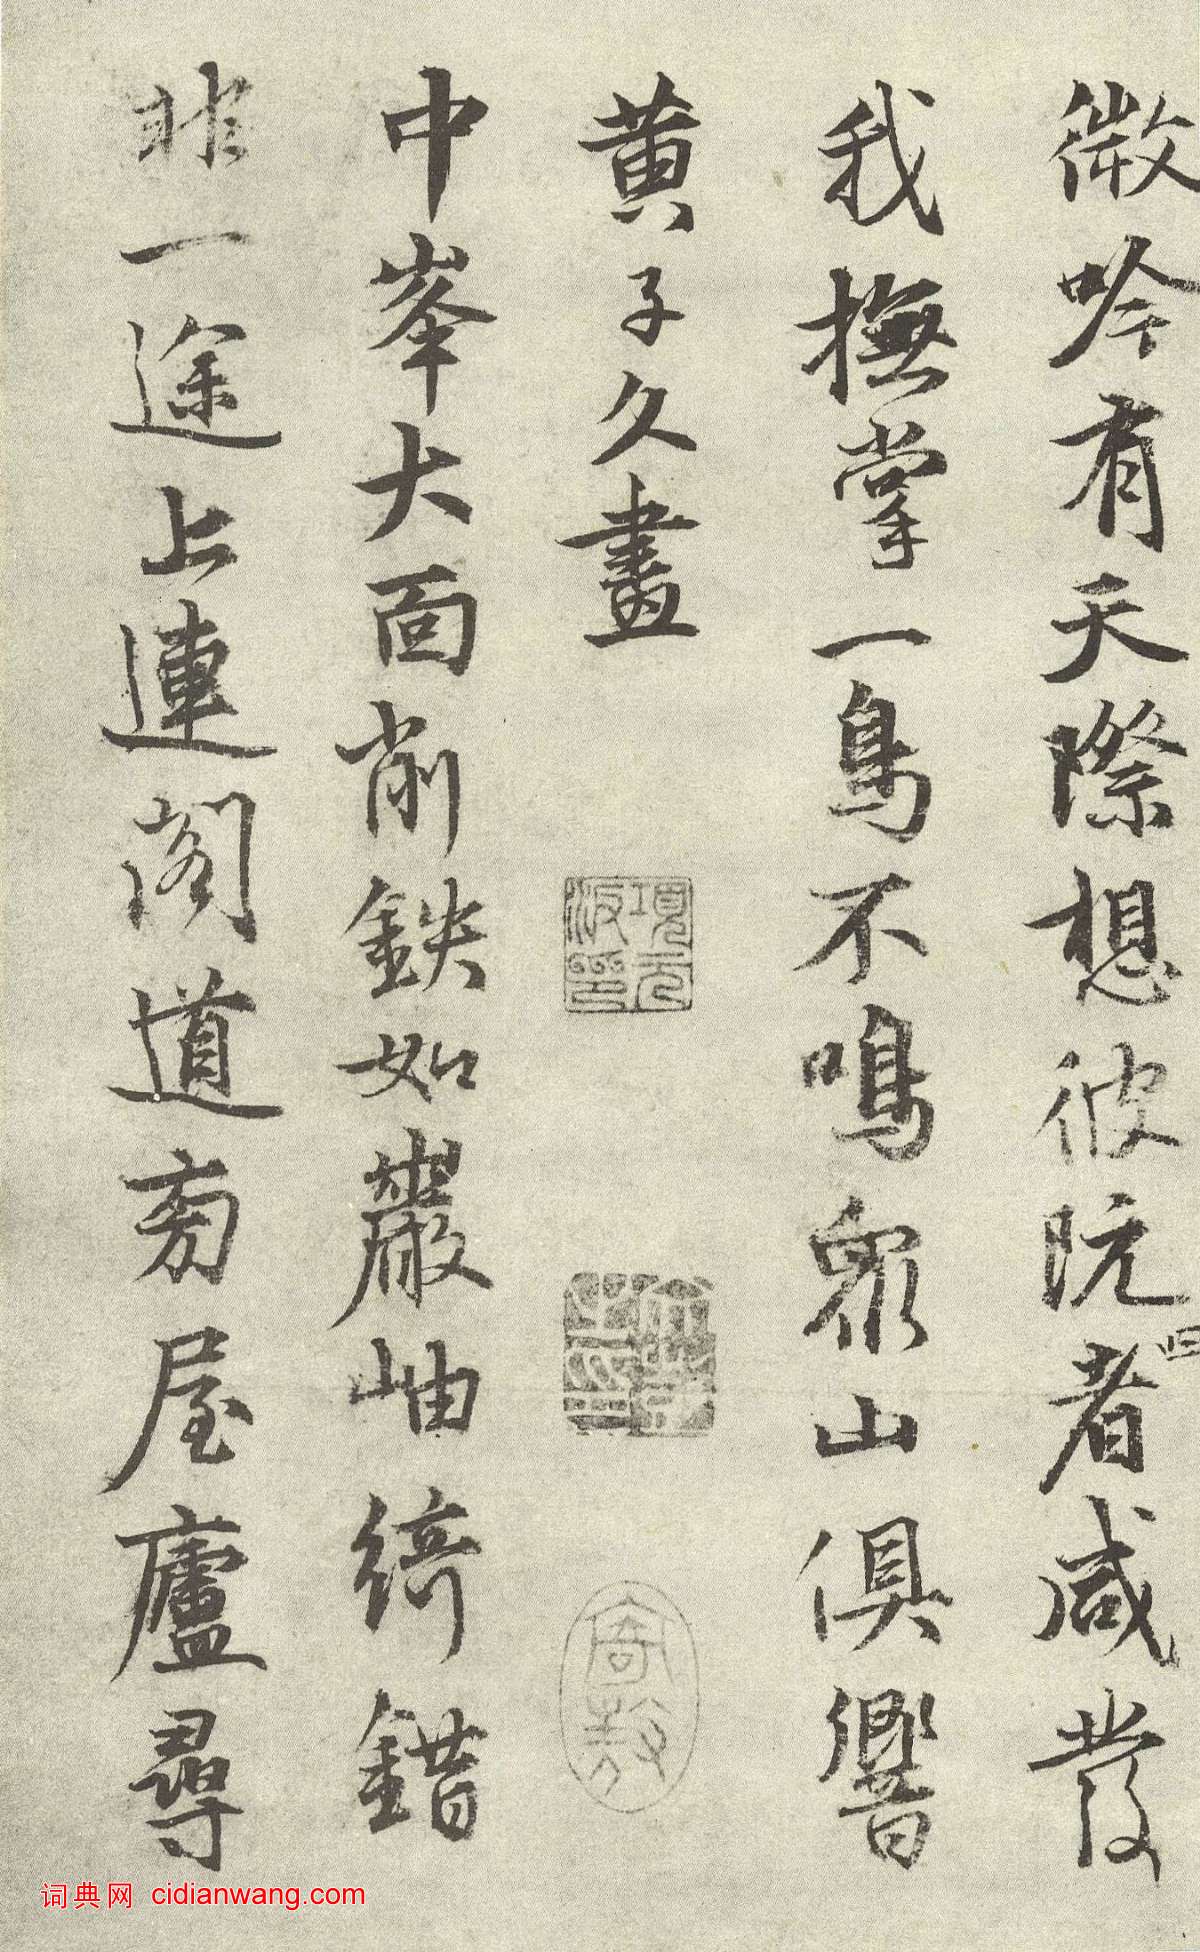 微吟有天際想彼阮者咸發
我撫掌一鳥不鳴眾山俱響
黄子久畫
中峯大面削鉄如巖岫綺錯
非一途上連閣道旁屋廬尋
項元汴印
寄敖
词典网 cidianwang.com